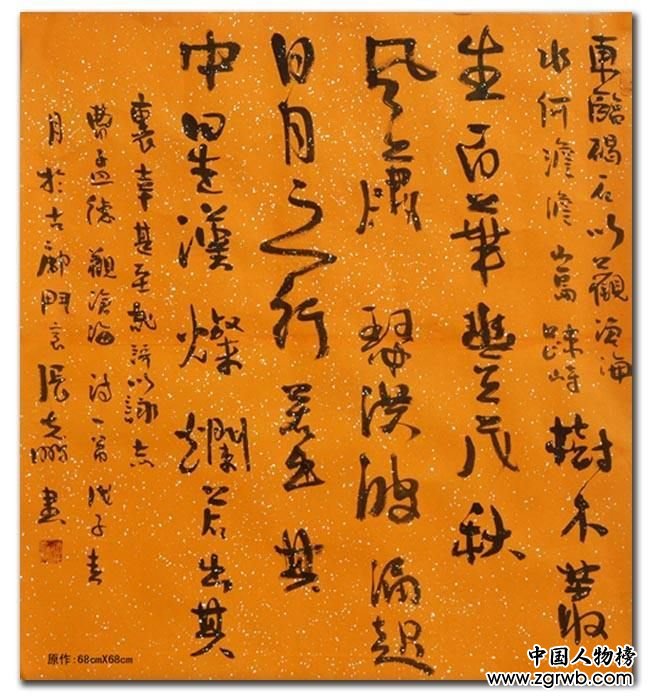 東臨碣石以觀滄海
水何澹澹山島竦峙
樹木叢
生百草豐茂秋
風蕭瑟洪波湧起
日月之行若出其
中星漢燦爛若出其
裏幸甚至哉歌以詠志
曹孟德觀滄海詩一首戊子春
月於古廊門 張 鵬書
原作:68cmX68cm
中国人物榜
www.zgrwb.com